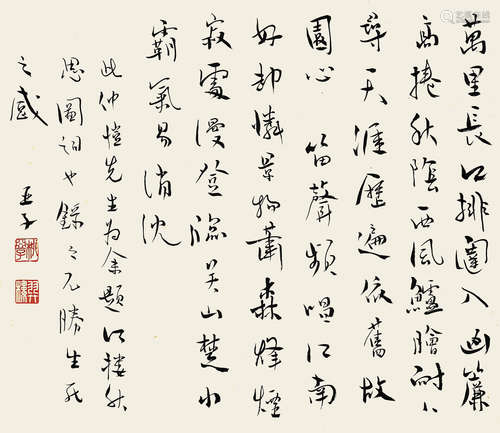 萬里長江排闥入画簾
高捲秋陰西風鱸膾耐人
尋天涯歷遍依舊故
園心 笛聲頻唱江南
好却憐景物蕭森烽煙
寂處漫登臨吴山楚水
霸氣易消沈
此仲愷先生为余題江樓秋
思圖詞也錄之不勝生死
之感 亞子